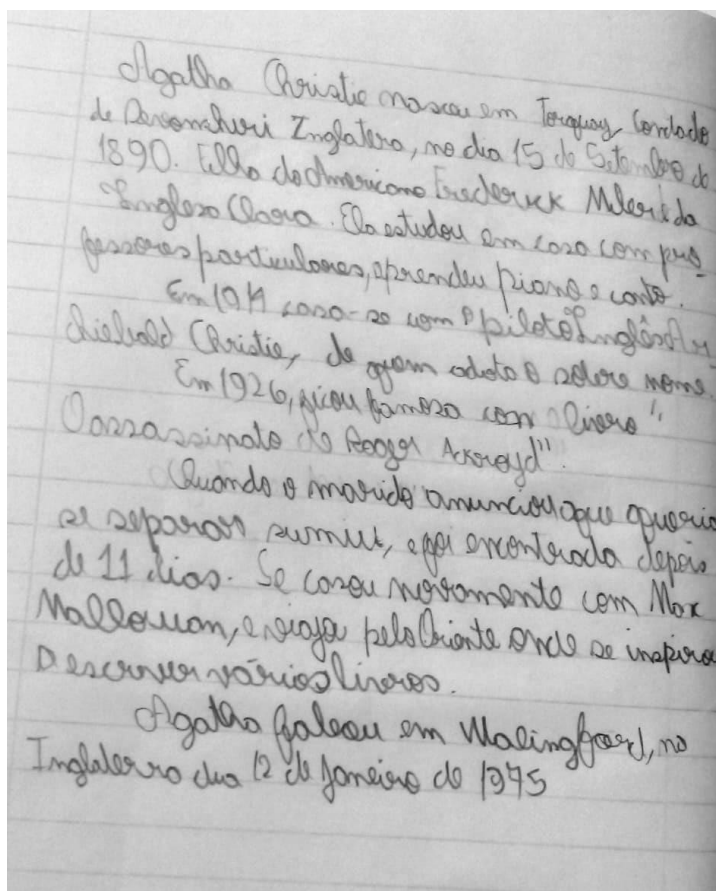 Agatha Christie nasceu em Torquay, Condado
de Devonchuri Inglatera, no dia 15 de Setembro de
1890. Filha do Americano Frederick Miler e da
Inglesa Clara. Ela estudou em casa com pro-
fessores particulares, aprendeu piano e canto.
Em 1914 casa-se com o piloto Inglês Ar-
chiebald Christie, de quem adota o sobre nome.
Em 1926, ficou famosa com o livro "
O assassinato de Rooger Ackroyd".
Quando o marido anunciou que queria
se separar sumiu, e foi encontrada depois
de 11 dias. Se casou novamente com Max
Mallowan, e viaja pelo Oriente onde se inspira
a escrever vários livros.
Agatha faleceu em Walingford, na
Inglaterra dia 12 de Janeiro de 1975